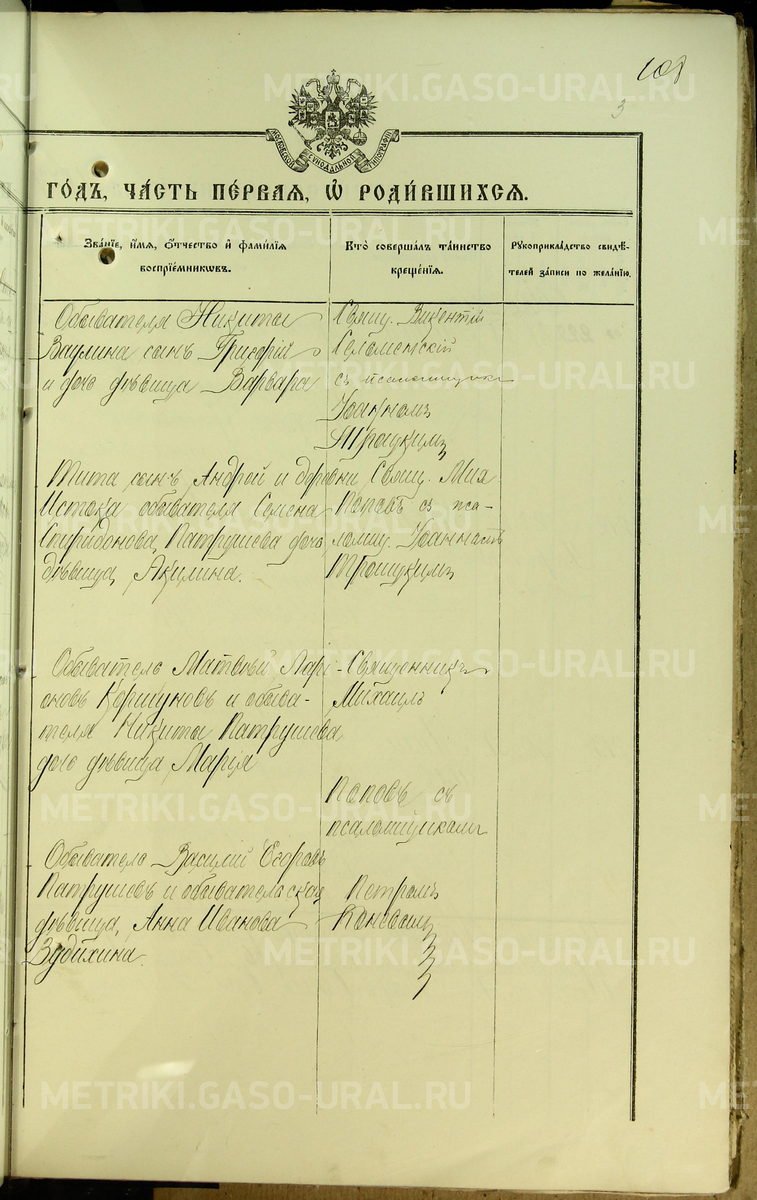 108
3
МОСКОВСКОЙ СѴНОДАЛЬНОЙ ТИПОГРАФІИ
ГО́ДЪ, ЧА́СТЬ ПЕ́РВАЯ, Ѡ҆ РОДИ́ВШИХСЯ.
Зва́нїе, и҆́мя, ѻ҆́тчество и҆ фами́лїя
воспрїе́мникѡвъ.
Кто̀ соверша́лъ та́инство
креще́нїя.
Рꙋкоприкла́дство свидѣ́-
телей за́писи по жела́нїю.
Обывателя Никиты
Ваулина сынъ Григорій
и дочь дѣвица Варвара
Свящ. Викентій
съ псаломщикомъ
Іоанномъ
Троицкимъ
Тита сынъ Андрей и деревни
Истока обывателя Семена
Спиридонова Патрушева дочь
дѣвица Акилина.
Свящ. Мих.
Поповъ съ пса-
ломщ. Іоанномъ
Троицкимъ
Обыватель Матвѣй Лари-
оновъ Коршуновъ и обыва-
теля Никиты Патрушева
дочь дѣвица Марія
Священникъ
Михаилъ
Поповъ съ
псаломщикомъ
Обыватель Василій Егоровъ
Патрушевъ и обывательская
дѣвица Анна Иванова
Зудихина.
Петромъ
METRIKI.GASO-URAL.RU